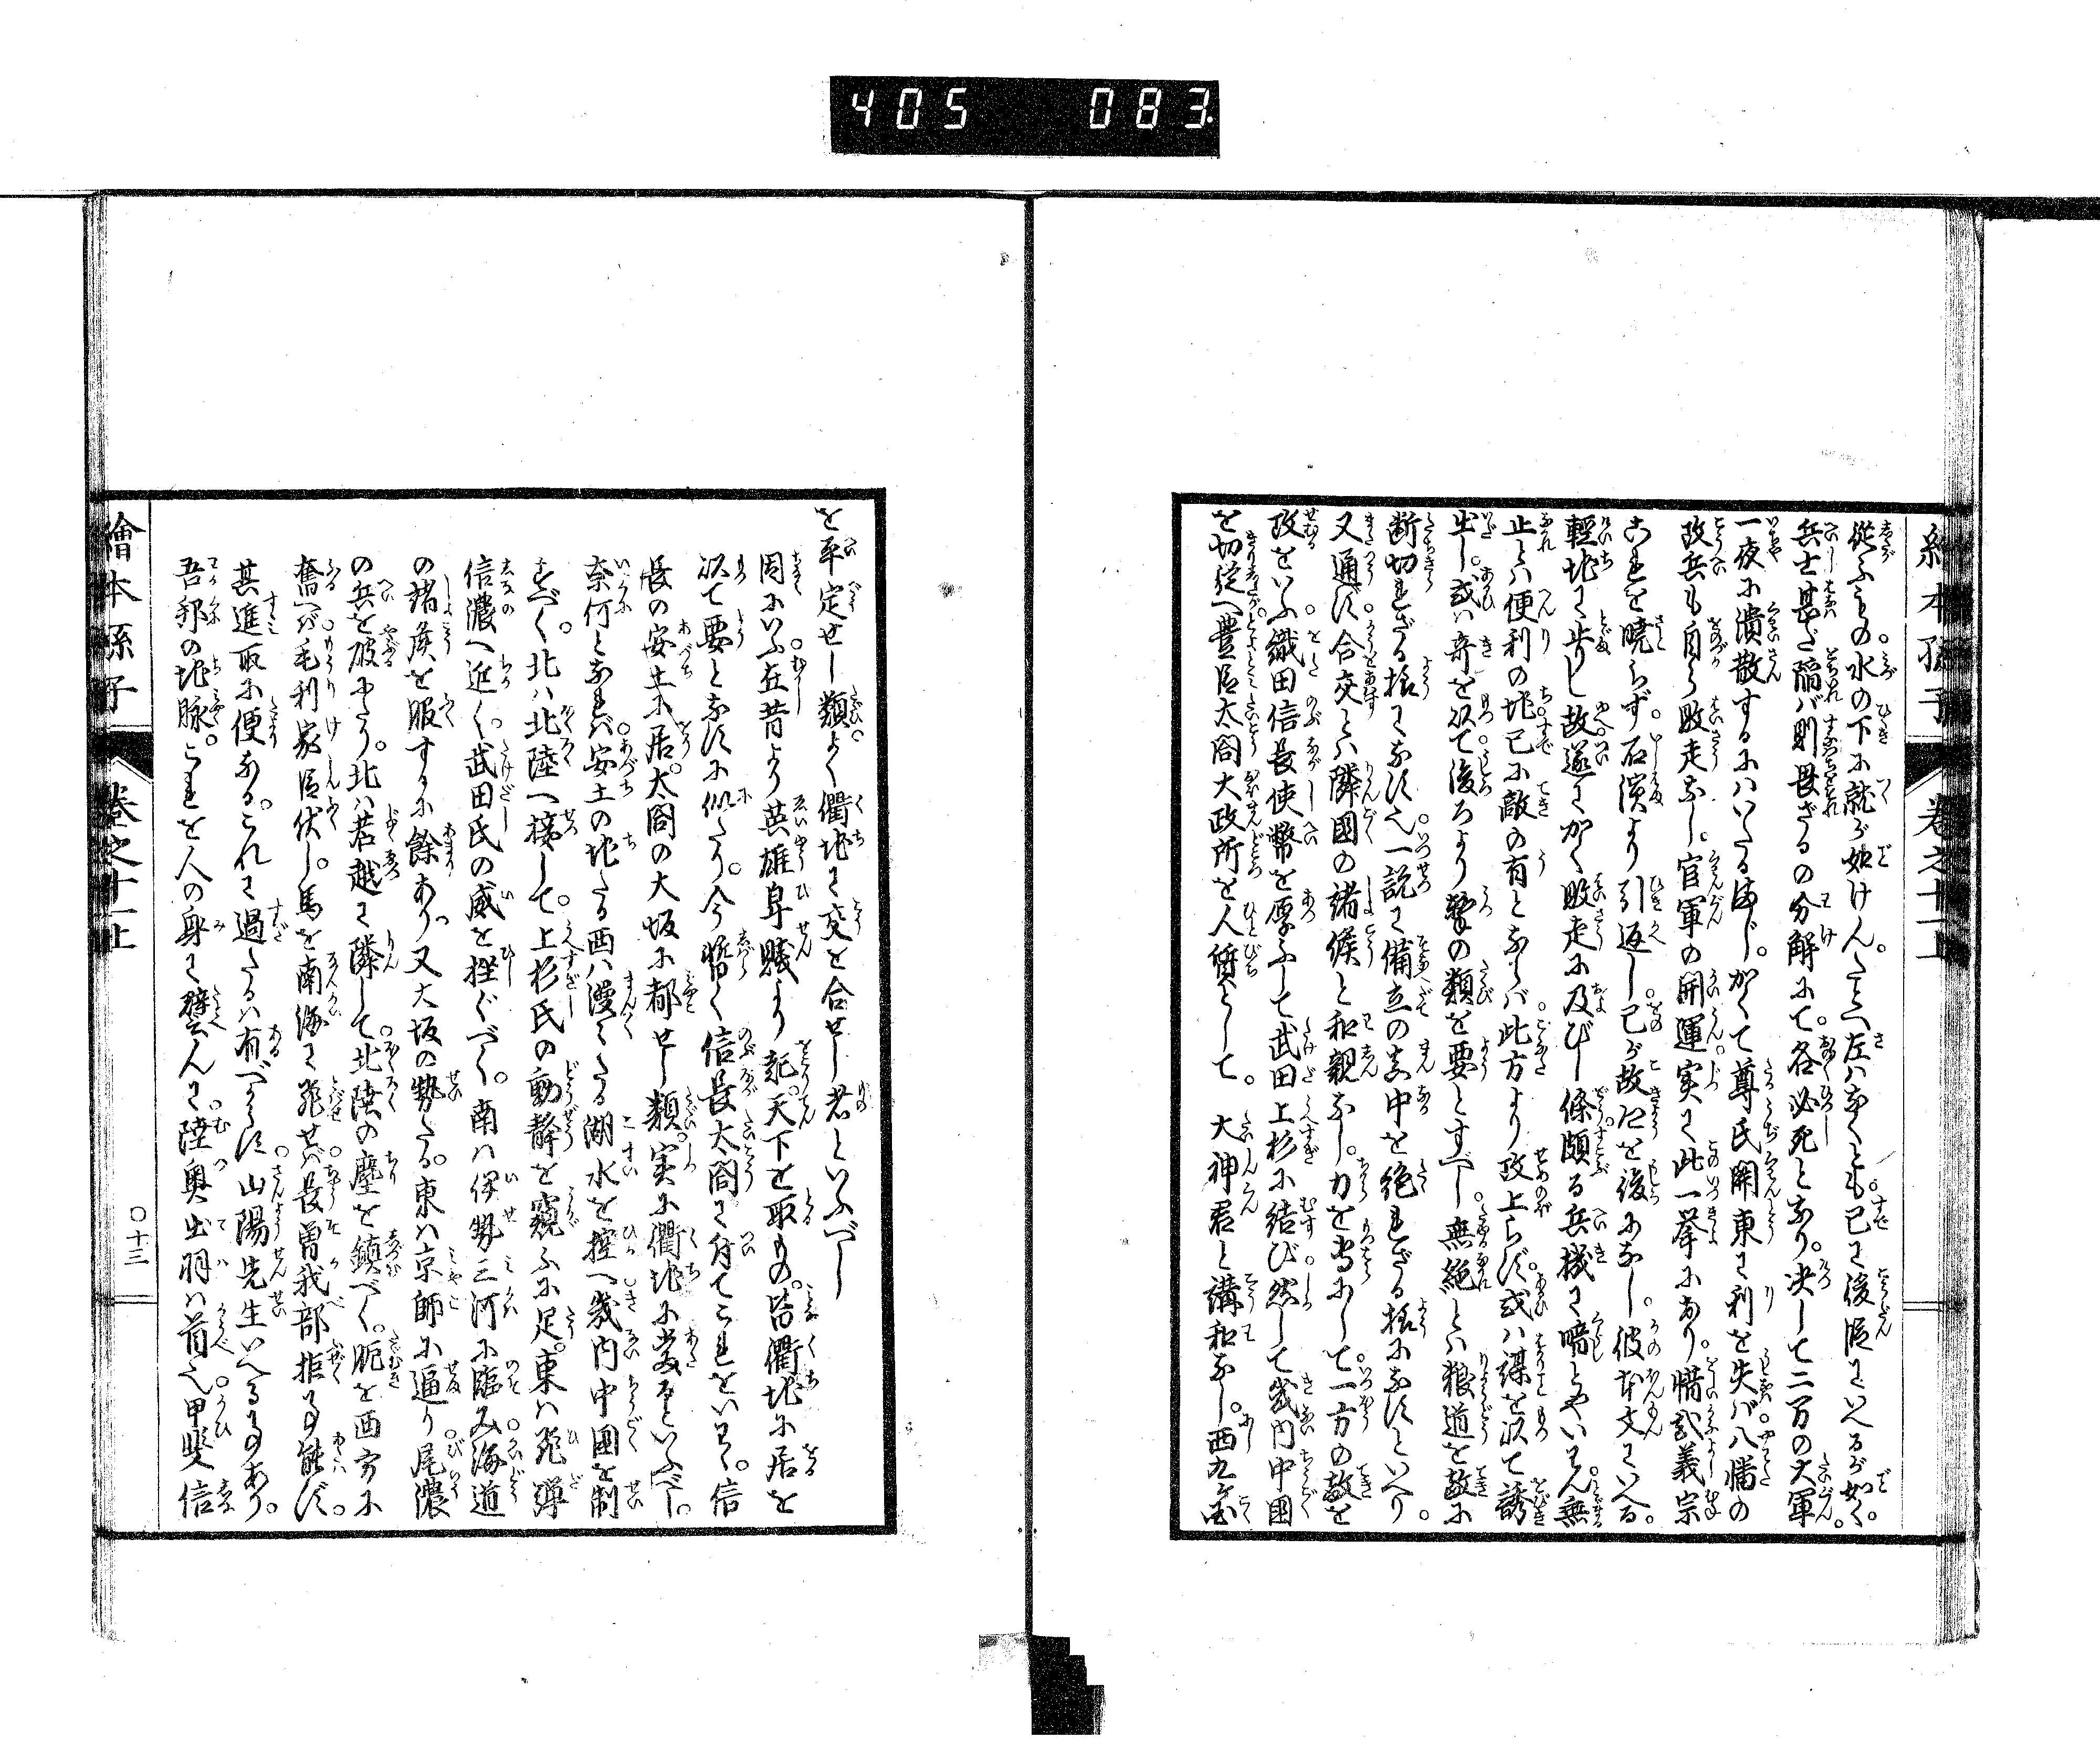 405 083
繪本孫子 卷之十一上
從ふもの水の下に就が如けん。たとへ左はなくとも。已に後陣にいへるが如く。
兵士甚だ陥ば則畏ざるの分解にて。各必死となり。决して二万の大軍。
一夜に潰散するにはいたるまじ。かくて尊氏関東に利を失はゞ。八幡の
敌兵も自ら敗走なし。官軍の開運実に此一挙にあり。惜哉義宗
これを曉らず。石濱より引返し。己が故陣を後になし。彼本文にいへる。
輕地に止りし故。遂にかく敗走に及びし條。頗る兵機に暗とやいはん。無
止とは便利の地已に敵の有とならば。此方より攻上らず。或は謀を以て誘
出し。或は奇を以て後ろより撃の類を要とすべし。無絶とは粮道を敵に
断切れざる様になす也。一説に備立の真中を絶れざる様になすといへり。
又通ず。合交とは隣國の諸候と和親なし。力を当にして。一方の敵を
攻をいふ。織田信長使幣を厚ふして武田上杉に結び。然して幾内中國
を切從へ。豊臣太閤大政所を人質として。 大神君と講和なし。西九国
を平定せし類。よく衢地に交を合せし者といふべし
因にいふ。在昔より英雄身賤より起。天下を取もの。皆衢地に居を
以て要となすに似たり。今暫く信長太閤に付てこれをいはく。信
長の安土に居。太閤の大坂に都せし類。実に衢地に當るといふべし。
奈何となれば。安土の地たる西は漫々たる湖水を控へ幾内中國を制
すべく。北は北陸へ接して。上杉氏の動静を窺ふに足。東は飛騨
信濃へ近く。武田氏の威を挫ぐべく。南は伊勢三河に臨み。海道
の諸矦を服するに餘あり。又大坂の勢たる。東は京師に逼り。尾濃
の兵を破るべう。北は若越に隣して。北陸の塵を鎮べく。眦を西方に
奮へば。毛利家臣伏し。馬を南海に飛せば。長曽我部拒事能ず。
其進取に便なる。これに過たるは有べからず。山陽先生いへる事あり。
吾邦の地脉。これを人の身に譬んに。陸奥出羽は首也。甲斐信
繪本孫子 卷之十一上 〇十三